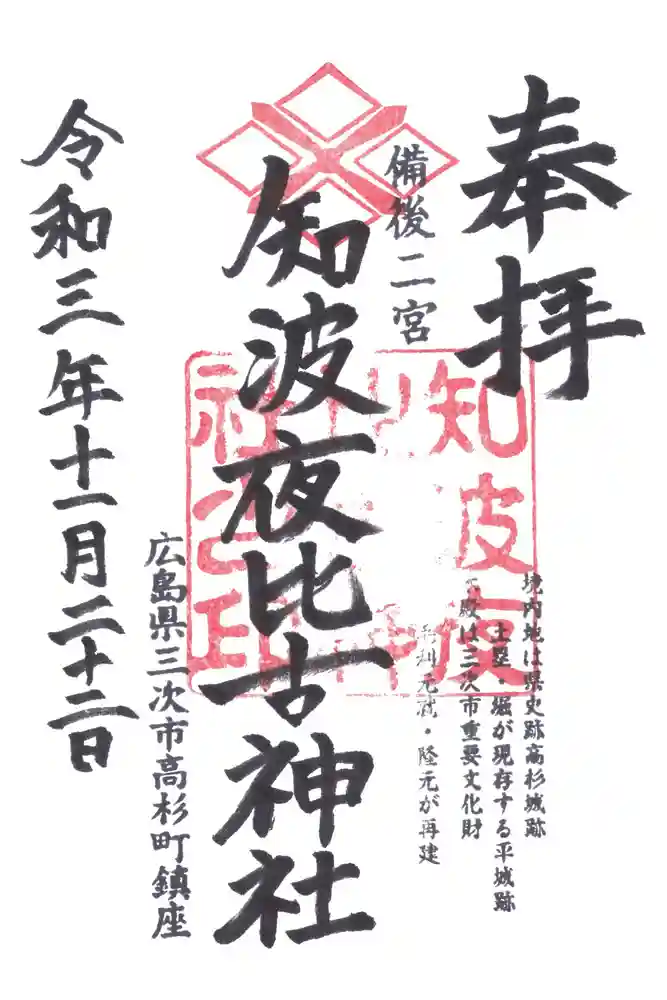 奉拝
備後二宮
知波夜比古神社
境内地は県史跡高杉城跡
土塁・堀が現存する平城跡
殿は三次市重要文化財
毛利元就・隆元が再建
広島県三次市高杉町鎮座
令和三年十一月二十二日
知波夜
社之印